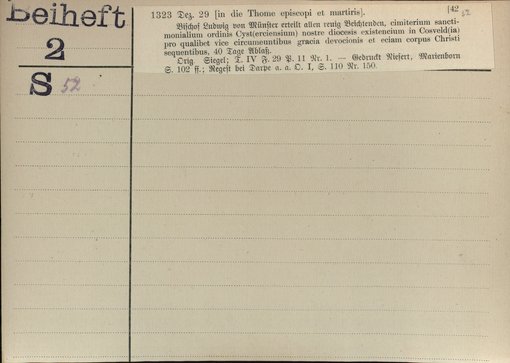 Beiheft
2
S 52
1323 Dez. 29 [in die Thome episcopi et martiris]. [42
52
Bischof Ludwig von Münster erteilt allen reuig Beichtenden, cimiterium sancti-
monialium ordinis Cyst(erciensium) nostre diocesis existencium in Cosveld(ia)
pro qualibet vice circumeuntibus gracia devocionis et eciam corpus Christi
sequentibus, 40 Tage Ablaß.
Orig. Siegel; T. IV F. 29 P. 11 Nr. 1. — Gedruckt Niesert, Marienborn
S. 102 ff.; Regest bei Darpe a. a. O. I, S. 110 Nr. 150.